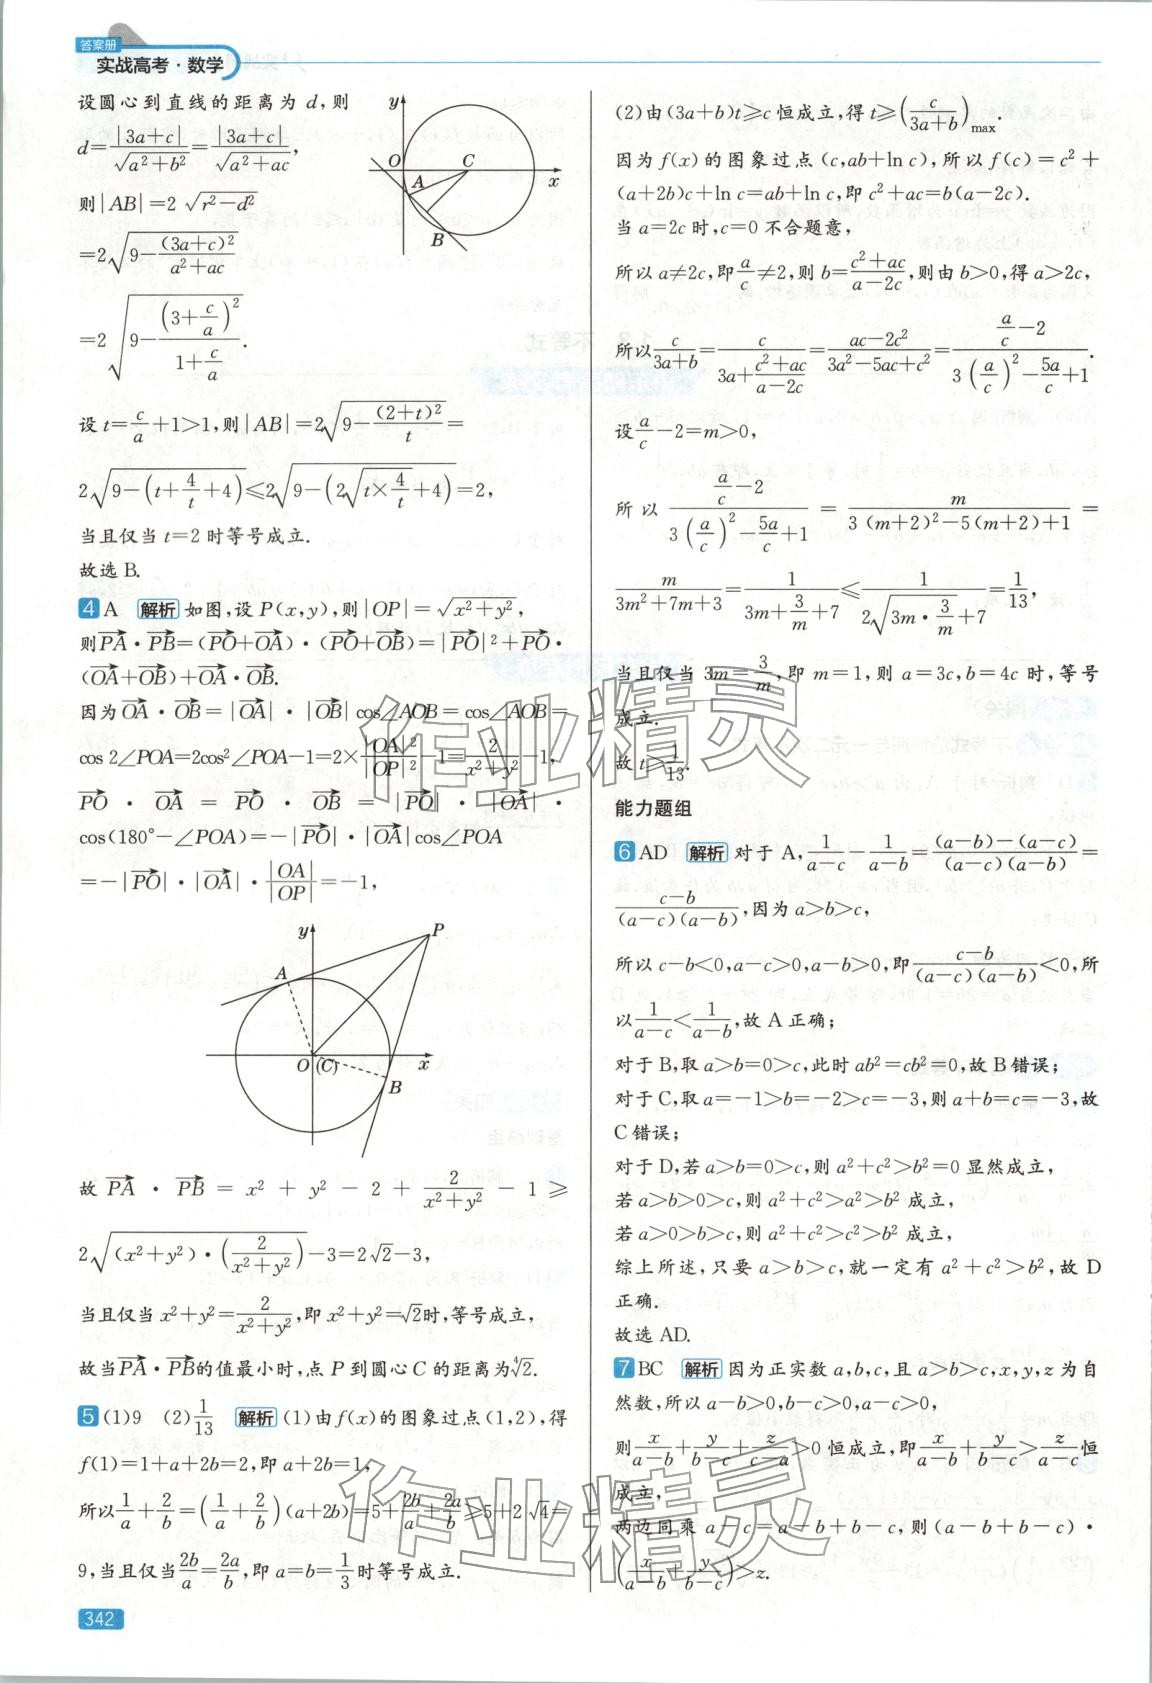 答案册
实战高考·数学
设圆心到直线的距离为 d,则
d=|3a+c|/√(a²+b²)=|3a+c|/√(a²+ac),
则|AB|=2√(r²-d²)
=2√(9-(3a+c)²/(a²+ac))
=2√(9-(3+c/a)²/(1+c/a)).
y
O
C
x
A
B
设 t=c/a+1>1,则|AB|=2√(9-(2+t)²/t)=
2√(9-(t+4/t+4))≤2√(9-(2√(t×4/t)+4))=2,
当且仅当 t=2 时等号成立.
故选 B.
4 A 解析 如图,设 P(x,y),则|OP|=√(x²+y²),
则PA·PB=(PO+OA)·(PO+OB)=|PO|²+PO·
(OA+OB)+OA·OB.
因为OA·OB=|OA|·|OB|cos∠AOB=cos∠AOB=
cos 2∠POA=2cos²∠POA-1=2×|OA|²/|OP|²-1=2/(x²+y²)-1,
PO·OA=PO·OB=|PO|·|OA|·
cos(180°-∠POA)=-|PO|·|OA|cos∠POA
=-|PO|·|OA|·|OA|/|OP|=-1,
y
P
A
O
(C)
x
B
故 PA·PB=x²+y²-2+2/(x²+y²)-1≥
2√((x²+y²)·(2/(x²+y²)))-3=2√2-3,
当且仅当 x²+y²=2/(x²+y²),即 x²+y²=√2时,等号成立,
故当PA·PB的值最小时,点 P 到圆心 C 的距离为⁴√2.
5 (1)9 (2)1/13 解析 (1)由 f(x)的图象过点(1,2),得
f(1)=1+a+2b=2,即 a+2b=1,
所以1/a+2/b=(1/a+2/b)(a+2b)=5+2b/a+2a/b≥5+2√4=
9,当且仅当2b/a=2a/b,即 a=b=1/3时等号成立.
342
(2)由(3a+b)t≥c 恒成立,得 t≥(c/(3a+b))max.
因为 f(x)的图象过点(c,ab+ln c),所以 f(c)=c²+
(a+2b)c+ln c=ab+ln c,即 c²+ac=b(a-2c).
当 a=2c 时,c=0 不合题意,
所以 a≠2c,即a/c≠2,则 b=(c²+ac)/(a-2c),则由 b>0,得 a>2c,
所以c/(3a+b)=c/(3a+(c²+ac)/(a-2c))=(ac-2c²)/(3a²-5ac+c²)=(a/c-2)/(3(a/c)²-5a/c+1).
设a/c-2=m>0,
所以(a/c-2)/(3(a/c)²-5a/c+1)=m/(3(m+2)²-5(m+2)+1)=
m/(3m²+7m+3)=1/(3m+3/m+7)≤1/(2√(3m·3/m)+7)=1/13,
当且仅当 3m=3/m,即 m=1,则 a=3c,b=4c 时,等号
成立.
故 t≥1/13.
能力题组
6 AD 解析 对于 A,1/(a-c)-1/(a-b)=((a-b)-(a-c))/((a-c)(a-b))=
(c-b)/((a-c)(a-b)),因为 a>b>c,
所以 c-b<0,a-c>0,a-b>0,即(c-b)/((a-c)(a-b))<0,所
以1/(a-c)<1/(a-b),故 A 正确;
对于 B,取 a>b=0>c,此时 ab²=cb²=0,故 B 错误;
对于 C,取 a=-1>b=-2>c=-3,则 a+b=c=-3,故
C 错误;
对于 D,若 a>b=0>c,则 a²+c²>b²=0 显然成立,
若 a>b>0>c,则 a²+c²>a²>b² 成立,
若 a>0>b>c,则 a²+c²>c²>b² 成立,
综上所述,只要 a>b>c,就一定有 a²+c²>b²,故 D
正确.
故选 AD.
7 BC 解析 因为正实数 a,b,c,且 a>b>c,x,y,z 为自
然数,所以 a-b>0,b-c>0,a-c>0,
则x/(a-b)+y/(b-c)+z/(c-a)>0 恒成立,即x/(a-b)+y/(b-c)>z/(a-c)恒
成立,
两边同乘 a-c=a-b+b-c,则(a-b+b-c)·
(x/(a-b)+y/(b-c))>z.
作业精灵
作业精灵